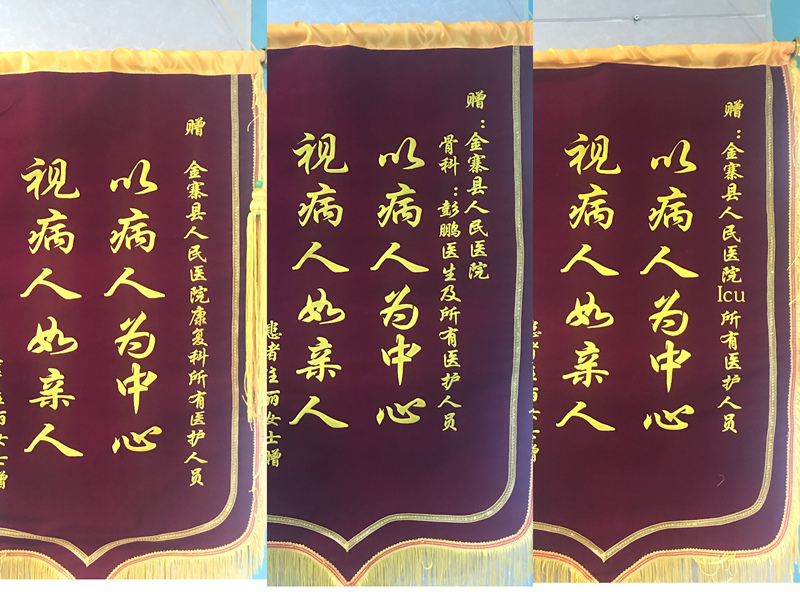 赠 金寨县人民医院康复科所有医护人员
以病人为中心
视病人如亲人
赠：金寨县人民医院
骨科：彭鹏医生及所有医护人员
以病人为中心
视病人如亲人
患者主丽女士赠
赠：金寨县人民医院Icu所有医护人员
以病人为中心
视病人如亲人